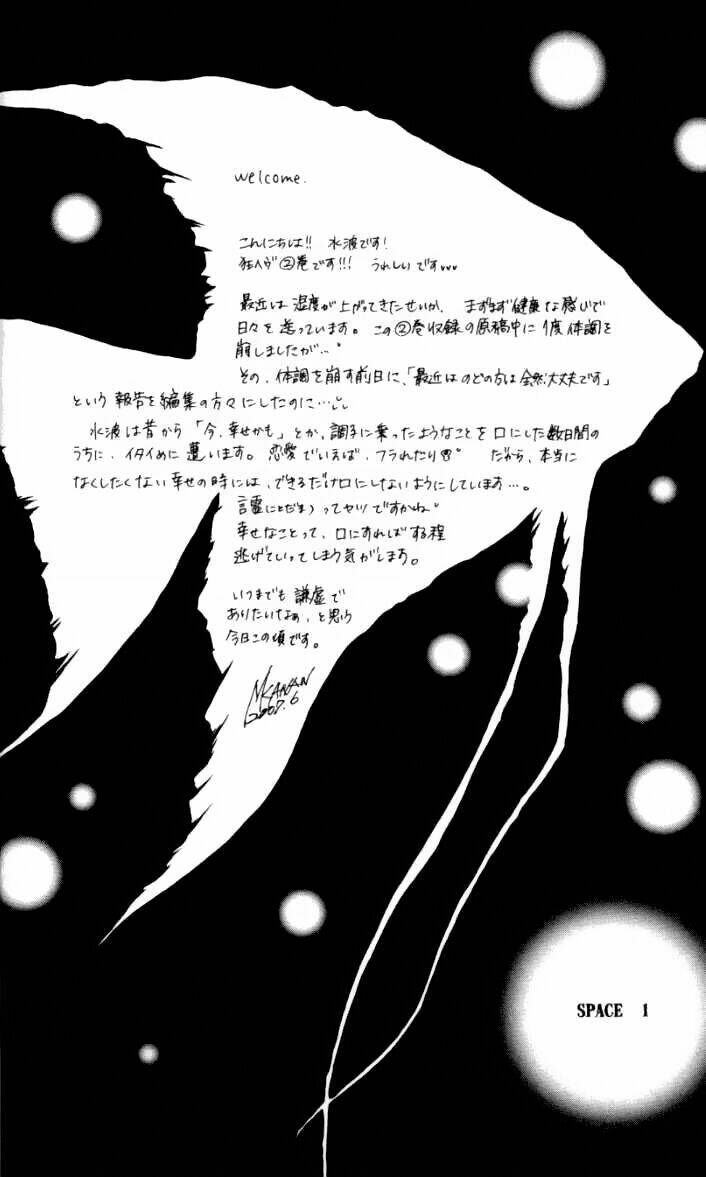 welcome.
こんにちは!! 水波です!
狂ヘヴ②巻です!!! うれしいです
最近は湿度が上がってきたせいか、まずまず健康な感じで
日々を送っています。この②巻収録の原稿中に1度体調を
崩しましたが…。
その、体調を崩す前日に、「最近はのどの方は全然大丈夫です」
という報告を編集の方々にしたのに…
水波は昔から「今、幸せかも」とか、調子に乗ったようなことを口にした数日間の
うちに、イタイめに遭います。恋愛でいえば、フラれたり だから、本当に
なくしたくない幸せの時には、できるだけ口にしないようにしています…。
言霊(ことだま)ってヤツですかね。
幸せなことって、口にすればする程
逃げていってしまう気がします。
いつまでも謙虚で
ありたいなぁ、と思う
今日この頃です。
KANAN
2007.6
SPACE 1